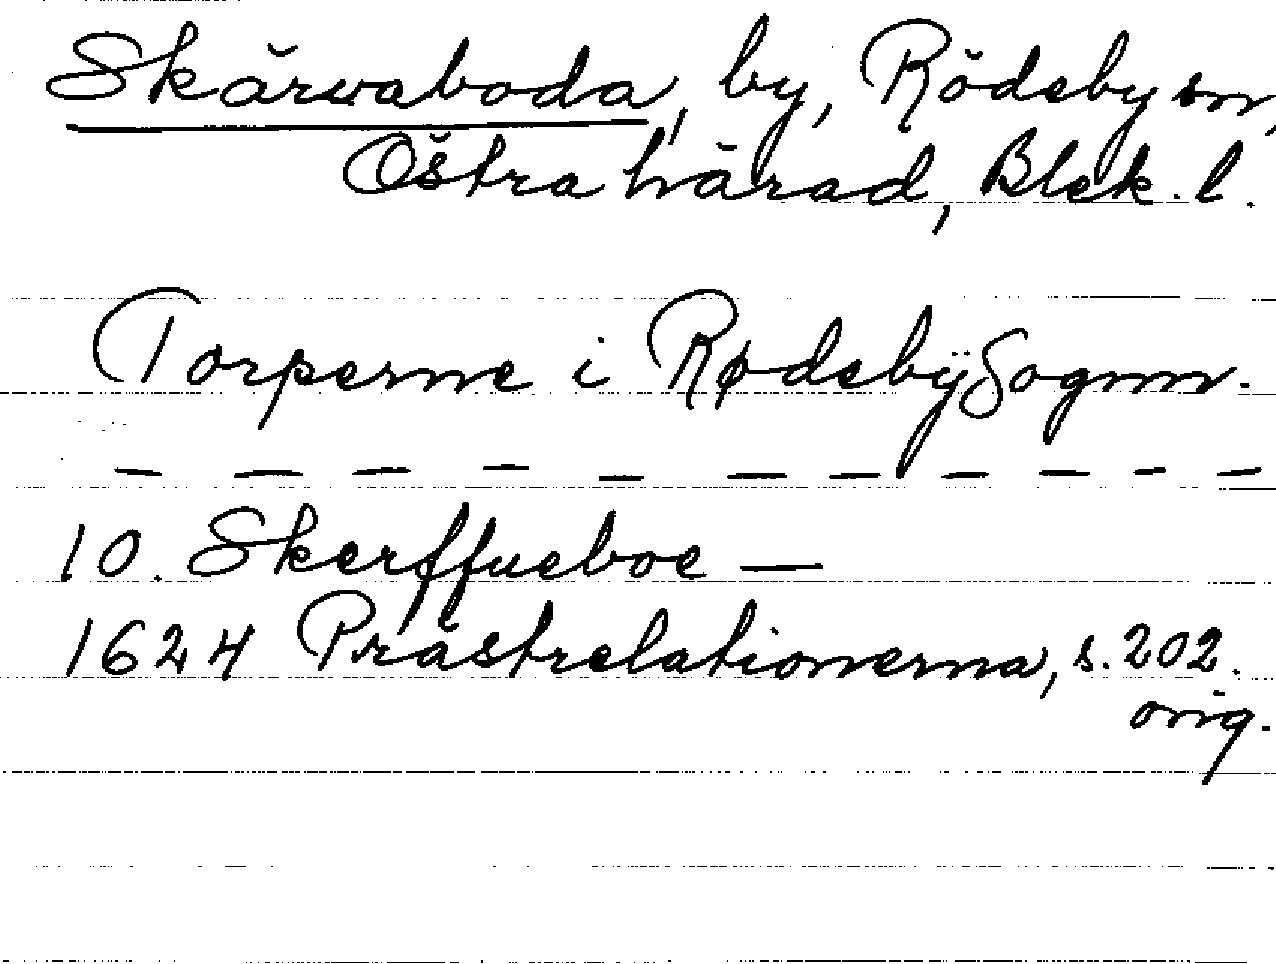 Skärvaboda, by, Rödeby sn,
Östra härad, Blek. l.
Torperne i Rødebÿ Sognn.
— — — — — — — — — — —
10. Skerffueboe —
1624 Prästrelationerna, s. 202.
orig.